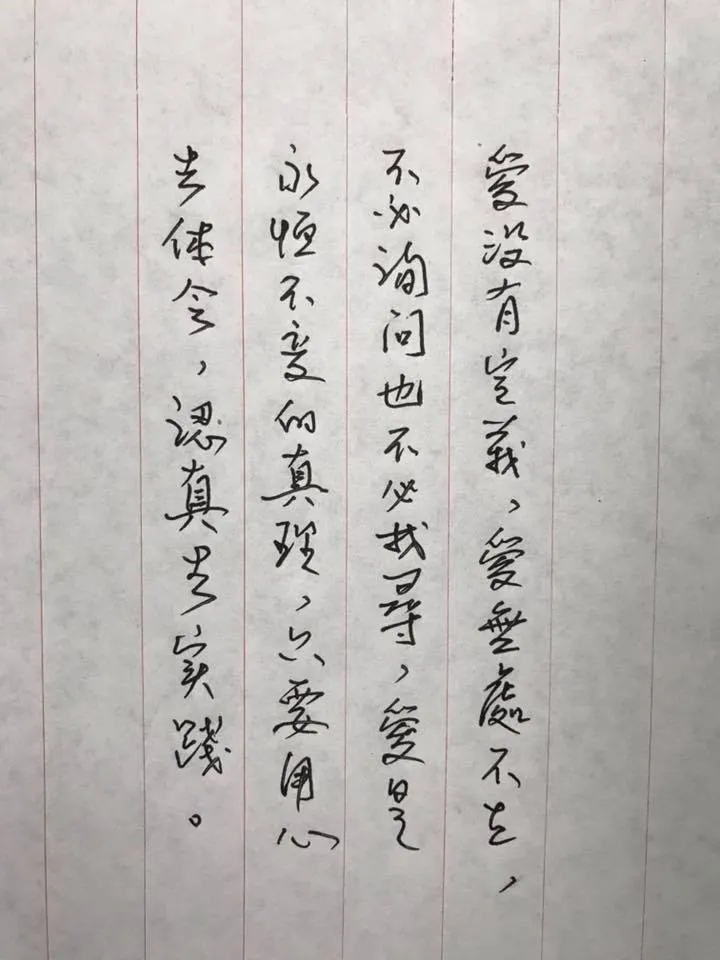 愛没有定義，愛無處不在，
不必詢问也不必找尋，愛是
永恒不变的真理，只要用心
去体会，認真去实踐。